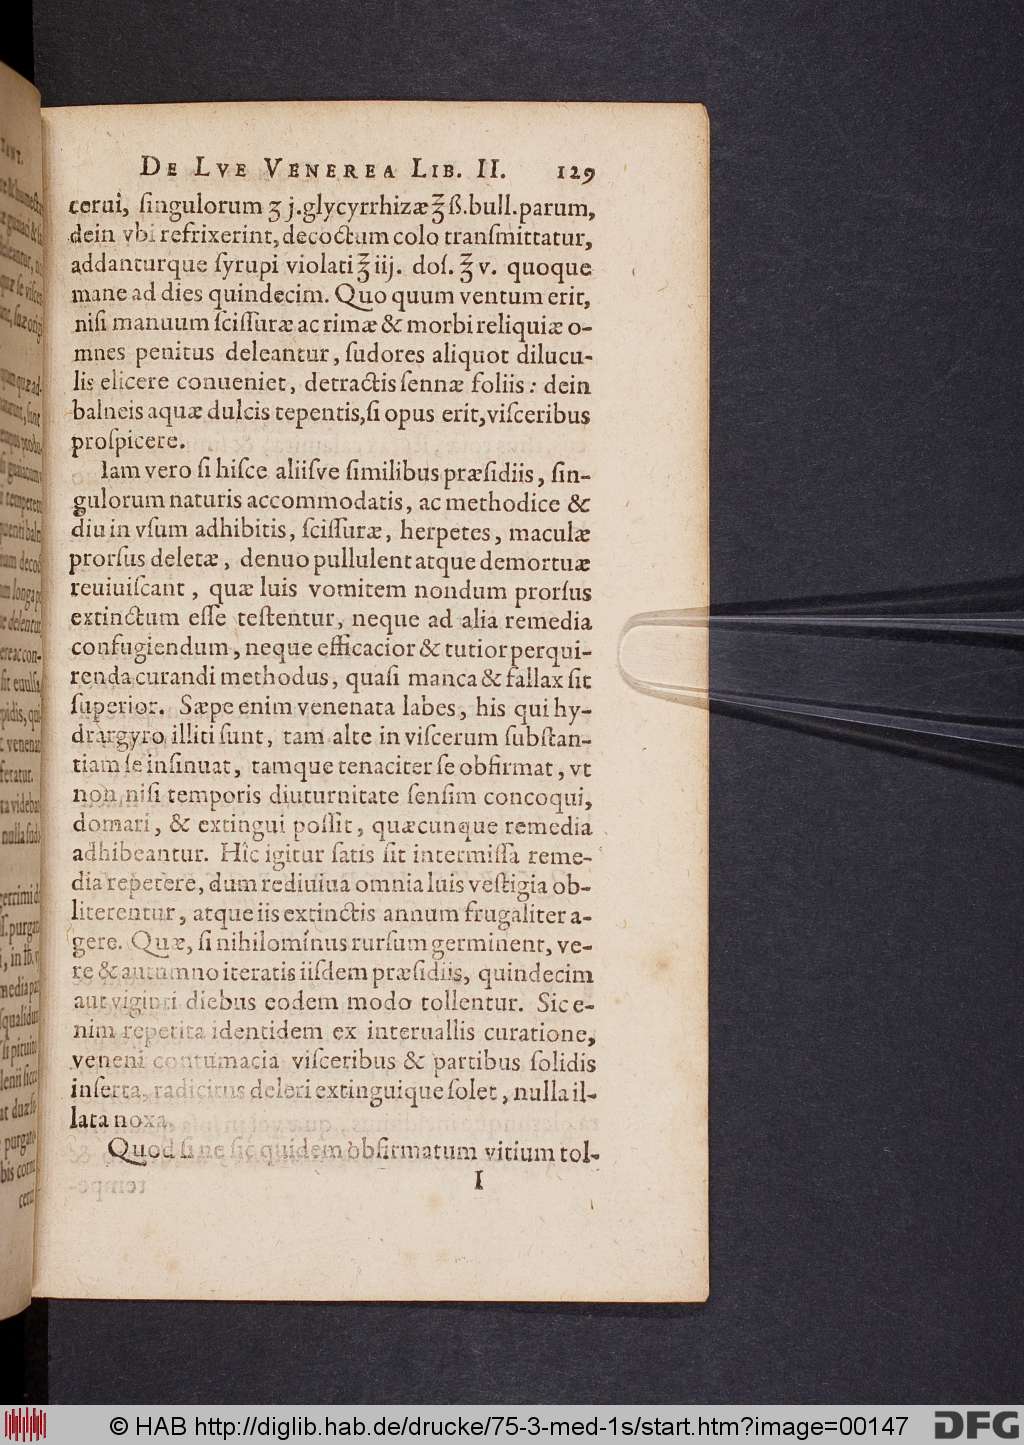 De Lve Venerea Lib. II. 129
cerui, ſingulorum ʒ j. glycyrrhizæ ℥ ß. bull. parum,
dein vbi refrixerint, decoctum colo tranſmittatur,
addanturque ſyrupi violati ℥ iij. doſ. ℥ v. quoque
mane ad dies quindecim. Quo quum ventum erit,
niſi manuum ſciſſuræ ac rimæ & morbi reliquiæ o-
mnes penitus deleantur, ſudores aliquot dilucu-
lis elicere conueniet, detractis ſennæ foliis: dein
balneis aquæ dulcis tepentis, ſi opus erit, viſceribus
proſpicere.
Iam vero ſi hiſce aliiſve ſimilibus præſidiis, ſin-
gulorum naturis accommodatis, ac methodice &
diu in vſum adhibitis, ſciſſuræ, herpetes, maculæ
prorſus deletæ, denuo pullulent atque demortuæ
reuiuiſcant, quæ luis vomitem nondum prorſus
extinctum eſſe teſtentur, neque ad alia remedia
confugiendum, neque efficacior & tutior perqui-
renda curandi methodus, quaſi manca & fallax ſit
ſuperior. Sæpe enim venenata labes, his qui hy-
drargyro illiti ſunt, tam alte in viſcerum ſubſtan-
tiam ſe inſinuat, tamque tenaciter ſe obfirmat, vt
non niſi temporis diuturnitate ſenſim concoqui,
domari, & extingui poſſit, quæcunque remedia
adhibeantur. Hîc igitur ſatis ſit intermiſſa reme-
dia repetere, dum rediuiua omnia luis veſtigia ob-
literentur, atque iis extinctis annum frugaliter a-
gere. Quæ, ſi nihilomínus rurſum germinent, ve-
re & autumno iteratis iiſdem præſidiis, quindecim
aut viginti diebus eodem modo tollentur. Sic e-
nim repetita identidem ex interuallis curatione,
veneni contumacia viſceribus & partibus ſolidis
inſerta, radicitus deleri extinguique ſolet, nulla il-
lata noxa.
Quod ſi ne ſic quidem obfirmatum vitium tol-
I
© HAB http://diglib.hab.de/drucke/75-3-med-1s/start.htm?image=00147
DFG